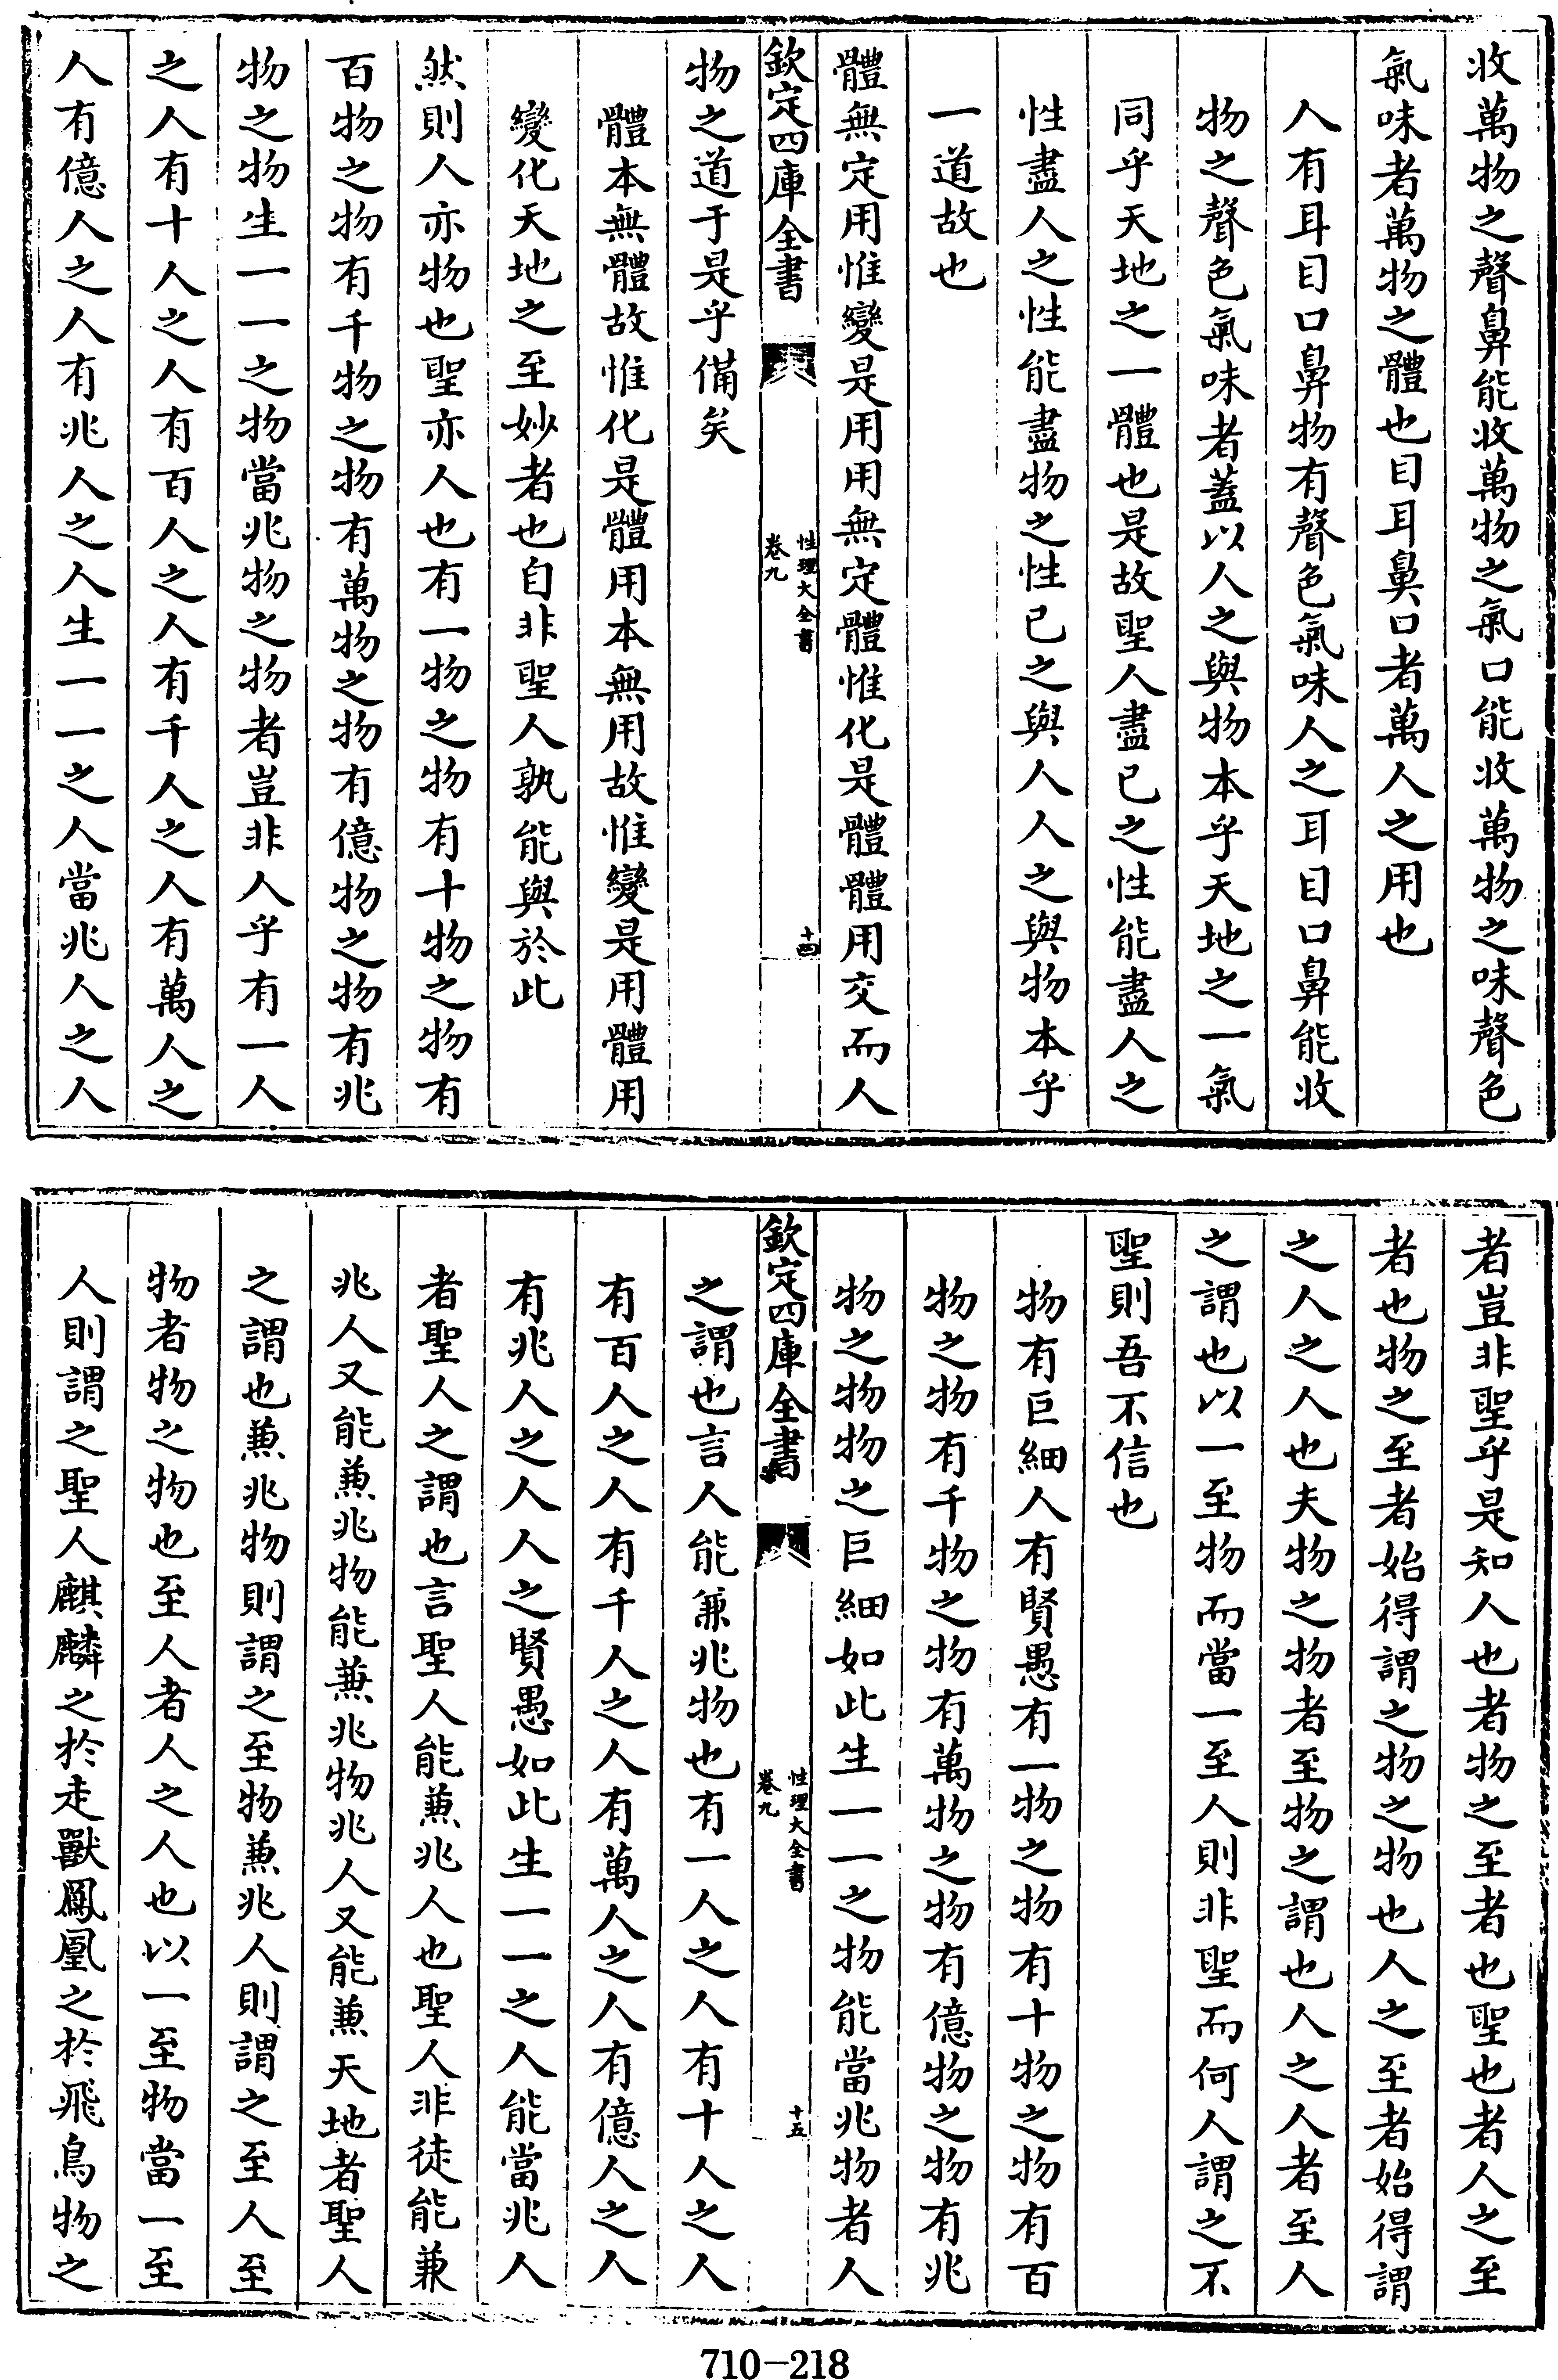 收萬物之聲鼻能收萬物之氣口能收萬物之味聲色
氣味者萬物之體也目耳鼻口者萬人之用也
人有耳目口鼻物有聲色氣味人之耳目口鼻能收
物之聲色氣味者蓋以人之與物本乎天地之一氣
同乎天地之一體也是故聖人盡已之性能盡人之
性盡人之性能盡物之性已之與人人之與物本乎
一道故也
體無定用惟變是用用無定體惟化是體體用交而人
欽定四庫全書
性理大全書
卷九
十四
物之道于是乎備矣
體本無體故惟化是體用本無用故惟變是用體用
變化天地之至妙者也自非聖人孰能與於此
然則人亦物也聖亦人也有一物之物有十物之物有
百物之物有千物之物有萬物之物有億物之物有兆
物之物生一一之物當兆物之物者豈非人乎有一人
之人有十人之人有百人之人有千人之人有萬人之
人有億人之人有兆人之人生一一之人當兆人之人
者豈非聖乎是知人也者物之至者也聖也者人之至
者也物之至者始得謂之物之物也人之至者始得謂
之人之人也夫物之物者至物之謂也人之人者至人
之謂也以一至物而當一至人則非聖而何人謂之不
聖則吾不信也
物有巨細人有賢愚有一物之物有十物之物有百
物之物有千物之物有萬物之物有億物之物有兆
物之物物之巨細如此生一一之物能當兆物者人
欽定四庫全書
性理大全書
卷九
十五
之謂也言人能兼兆物也有一人之人有十人之人
有百人之人有千人之人有萬人之人有億人之人
有兆人之人人之賢愚如此生一一之人能當兆人
者聖人之謂也言聖人能兼兆人也聖人非徒能兼
兆人又能兼兆物能兼兆物兆人又能兼天地者聖人
之謂也兼兆物則謂之至物兼兆人則謂之至人至
物者物之物也至人者人之人也以一至物當一至
人則謂之聖人麒麟之於走獸鳳凰之於飛鳥物之
710-218